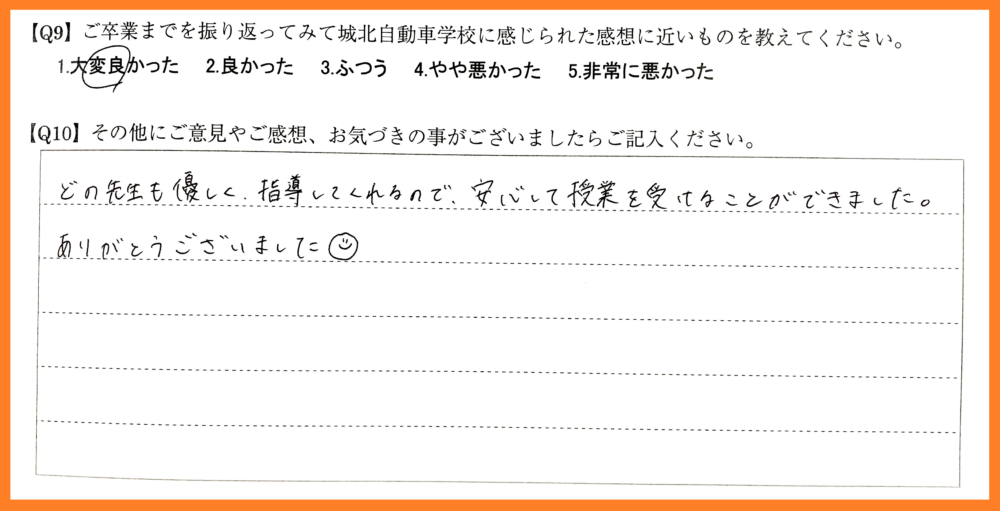 【Q9】ご卒業までを振り返ってみて城北自動車学校に感じられた感想に近いものを教えてください。
1.大変良かった 2.良かった 3.ふつう 4.やや悪かった 5.非常に悪かった
【Q10】その他にご意見やご感想、お気づきの事がございましたらご記入ください。
どの先生も優しく、指導してくれるので、安心して授業を受けることができました。
ありがとうございました☺